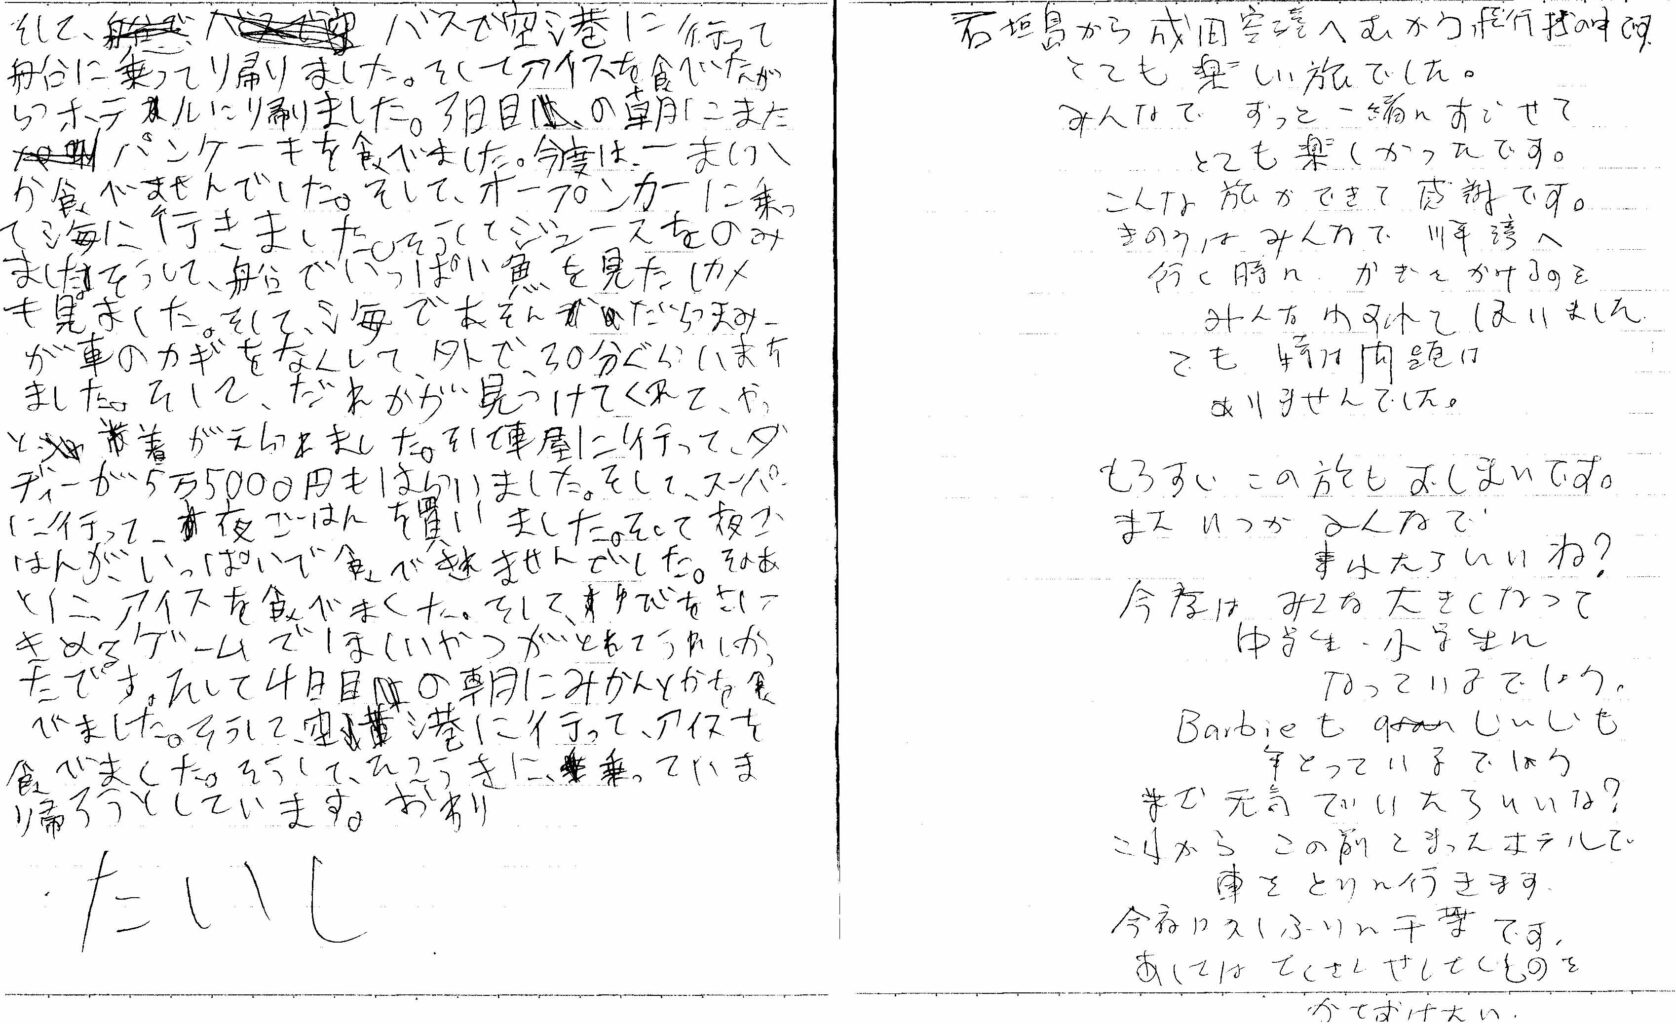 そして、バスで空港に行って
船に乗って帰りました。そしてアイスを食べたか
らホテルに帰りました。3日目の朝にまた
パンケーキを食べました。今度は、一まいし
か食べませんでした。そして、オープンカーに乗っ
て海に行きました。そうしてジュースをのみ
ました。そうして、船でいっぱい魚を見たしカメ
も見ました。そして、海であそんだらまみー
が車のカギをなくして、外で、30分ぐらいまち
ました。そして、だれかが見つけてくれて、やっ
と着がえられました。そして車屋に行って、ダ
ディーが5万5000円もはらいました。そして、スーパー
に行って、夜ごはんを買いました。そして夜ご
はんが、いっぱいで食べきれませんでした。そのあ
とに、アイスを食べました。そして、ゆびをさして
きめるゲームでほしいやつがとれてうれしかっ
たです。そして4日目の朝にみかんとかを食
べました。そうして、空港に行って、アイスを
食べました。そうして、ひこうきに、乗っていま
帰ろうとしています。おわり
たいし
石垣島から成田空港へむかう飛行機の中です。
とても楽しい旅でした。
みんなでずっと一緒にすごせて
とても楽しかったです。
こんな旅ができて感謝です。
きのうはみんなで川平湾へ
行く時に かぎをかけるのを
みんなわすれてしまいました
でも 特に問題は
ありませんでした。
もうすぐこの旅もおしまいです。
またいつかみんなで
来れたらいいね?
今度はみんな大きくなって
中学生・小学生に
なっているでしょう。
Barbieも じいじも
年とっているでしょう
まだ元気でいたらいいな?
これから この前とまったホテルで
車をとりに行きます。
今夜は久しぶりに千葉です。
あしたは たくさん せんたくものを
かたづけたい.